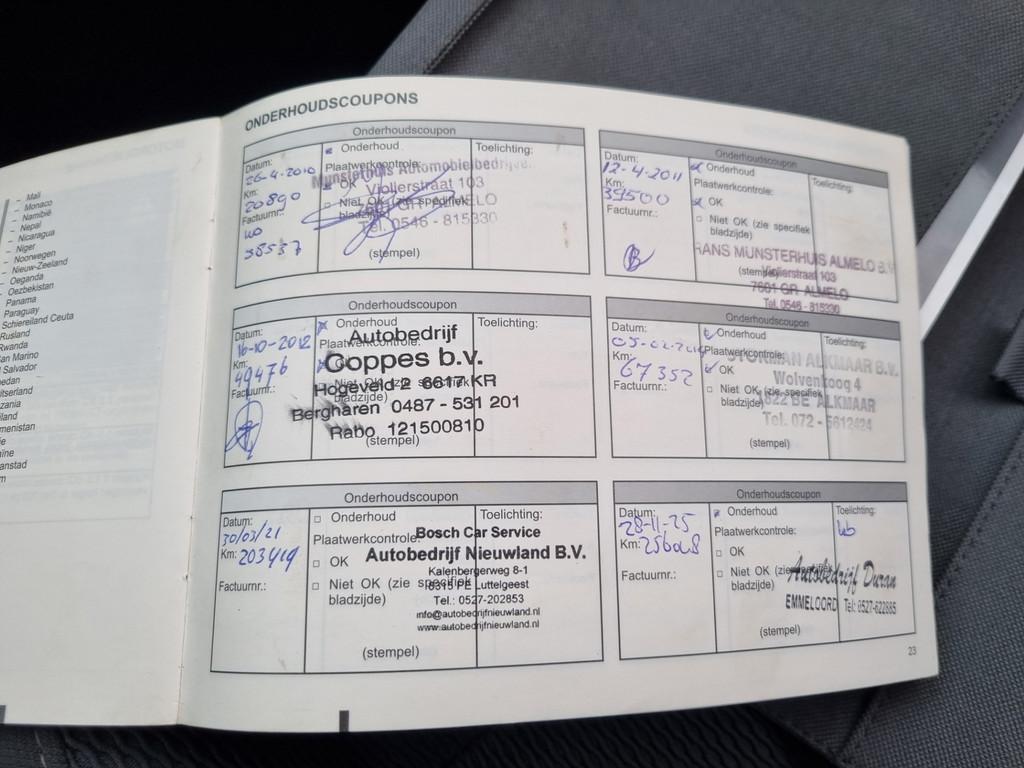 Mali
Monaco
Namibië
Nepal
Nicaragua
Niger
Noorwegen
Nieuw-Zeeland
Oeganda
Oezbekistan
Panama
Paraguay
Schiereiland Ceuta
Rusland
Rwanda
San Marino
ONDERHOUDSCOUPONS
Onderhoudscoupon
Datum:
26-4-2010
Km:
20890
Factuurnr.:
wo
38537
Onderhoud
Plaatwerkcontrole:
OK
Niet OK (zie specifiek
bladzijde)
(stempel)
Toelichting:
Munsterhuis Automobielbedrijven
Violierstraat 103
ALMELO
Tel. 0546 - 815330
Onderhoudscoupon
Datum:
12-4-2011
Km:
39500
Factuurnr.:
Onderhoud
Plaatwerkcontrole:
OK
Niet OK (zie specifiek
bladzijde)
Toelichting:
MUNSTERHUIS ALMELO B.V.
Violierstraat 103
7601 GR ALMELO
Tel. 0546 - 815330
Onderhoudscoupon
Datum:
16-10-2012
Km:
49476
Factuurnr.:
Onderhoud
Plaatwerkcontrole:
Niet OK (zie specifiek
bladzijde)
(stempel)
Toelichting:
Autobedrijf
Coppes b.v.
Hogeveld 2 6617 KR
Bergharen 0487 - 531 201
Rabo 121500810
Onderhoudscoupon
Datum:
Km:
67352
Factuurnr.:
Onderhoud
Plaatwerkcontrole:
OK
Niet OK (zie specifiek
bladzijde)
(stempel)
Toelichting:
ALKMAAR B.V.
Wolvenkoog 4
1822 BE ALKMAAR
Tel. 072 - 5612424
Onderhoudscoupon
Datum:
30/03/21
Km: 203419
Factuurnr.:
Onderhoud
Plaatwerkcontrole:
OK
Niet OK (zie specifiek
bladzijde)
(stempel)
Toelichting:
Bosch Car Service
Autobedrijf Nieuwland B.V.
Kalenbergerweg 8-1
8315 PE Luttelgeest
Tel.: 0527-202853
info@autobedrijfnieuwland.nl
www.autobedrijfnieuwland.nl
Onderhoudscoupon
Datum:
28-11-25
Km: 256008
Factuurnr.:
Onderhoud
Plaatwerkcontrole:
OK
Niet OK (zie specifiek
bladzijde)
(stempel)
Toelichting:
Autobedrijf Duran
EMMELOORD Tel: 0527-622885
23